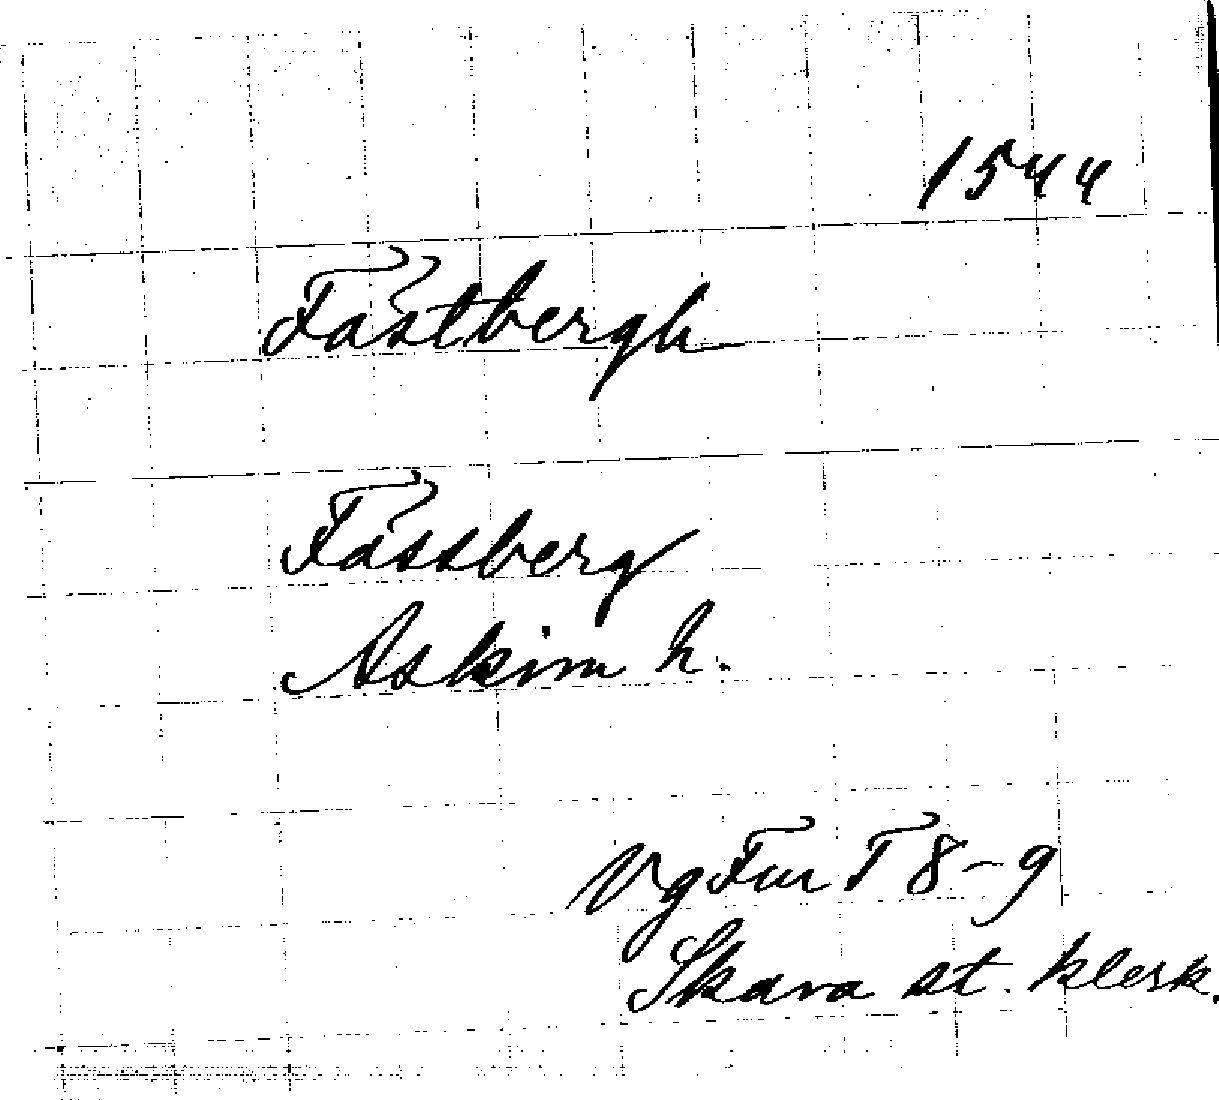 1544
Fastbergh
Fassberg
Askim h.
Vg Fur T 8-9
Skara st. klerk.